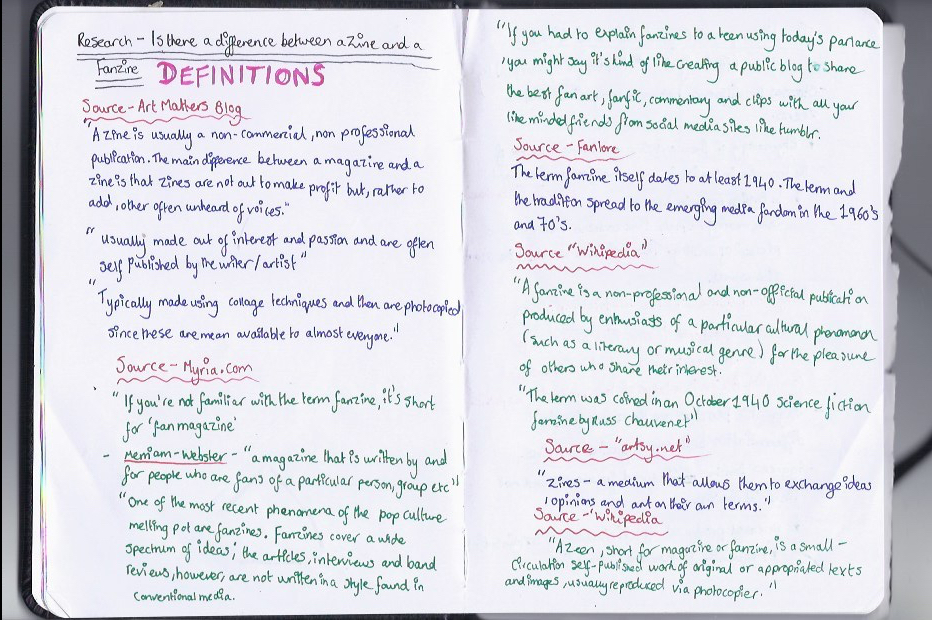 Research - Is there a difference between a Zine and a
Fanzine DEFINITIONS
Source - Art Matters Blog
"A zine is usually a non-commercial, non professional
publication. The main difference between a magazine and a
zine is that zines are not out to make profit but, rather to
add, other often unheard of voices."
" usually made out of interest and passion and are often
self published by the writer/artist"
"Typically made using collage techniques and then are photocopied
since these are mean available to almost everyone."
Source - Myria.com
"If you're not familiar with the term fanzine, it's short
for 'fan magazine'
- Merriam-Webster - "a magazine that is written by and
for people who are fans of a particular person, group etc"
"One of the most recent phenomena of the pop culture
melting pot are fanzines. Fanzines cover a wide
spectrum of ideas; the articles, interviews and band
reviews, however, are not written in a style found in
conventional media.
"If you had to explain fanzines to a teen using today's parlance
, you might say it's kind of like creating a public blog to share
the best fan art, fanfic, commentary and clips with all your
like minded friends from social media sites like tumblr.
Source - Fanlore
The term fanzine itself dates to at least 1940. The term and
the tradition spread to the emerging media fandom in the 1960's
and 70's.
Source "Wikipedia"
"A fanzine is a non-professional and non-official publication
produced by enthusiasts of a particular cultural phenomenon
(such as a literary or musical genre) for the pleasure
of others who share their interest.
"The term was coined in an October 1940 science fiction
fanzine by Russ Chauvenet"
Source - "artsy.net"
"zines - a medium that allows them to exchange ideas
, opinions and art on their own terms."
Source - "Wikipedia
"A zeen, short for magazine or fanzine, is a small -
circulation self-published work of original or appropriated texts
and images, usually reproduced via photocopier."